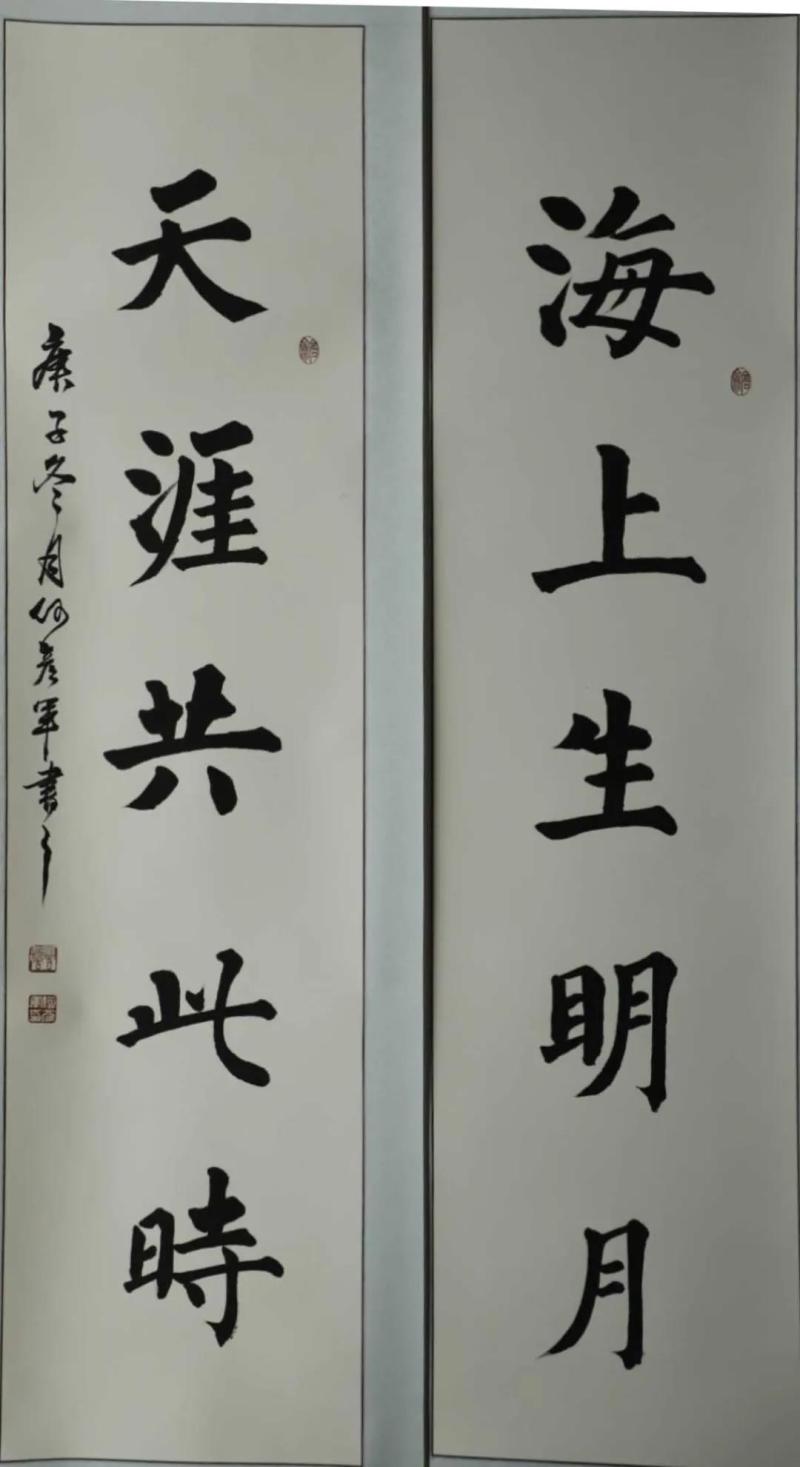 海上生明月
天涯共此時
庚子冬月何彦軍書之